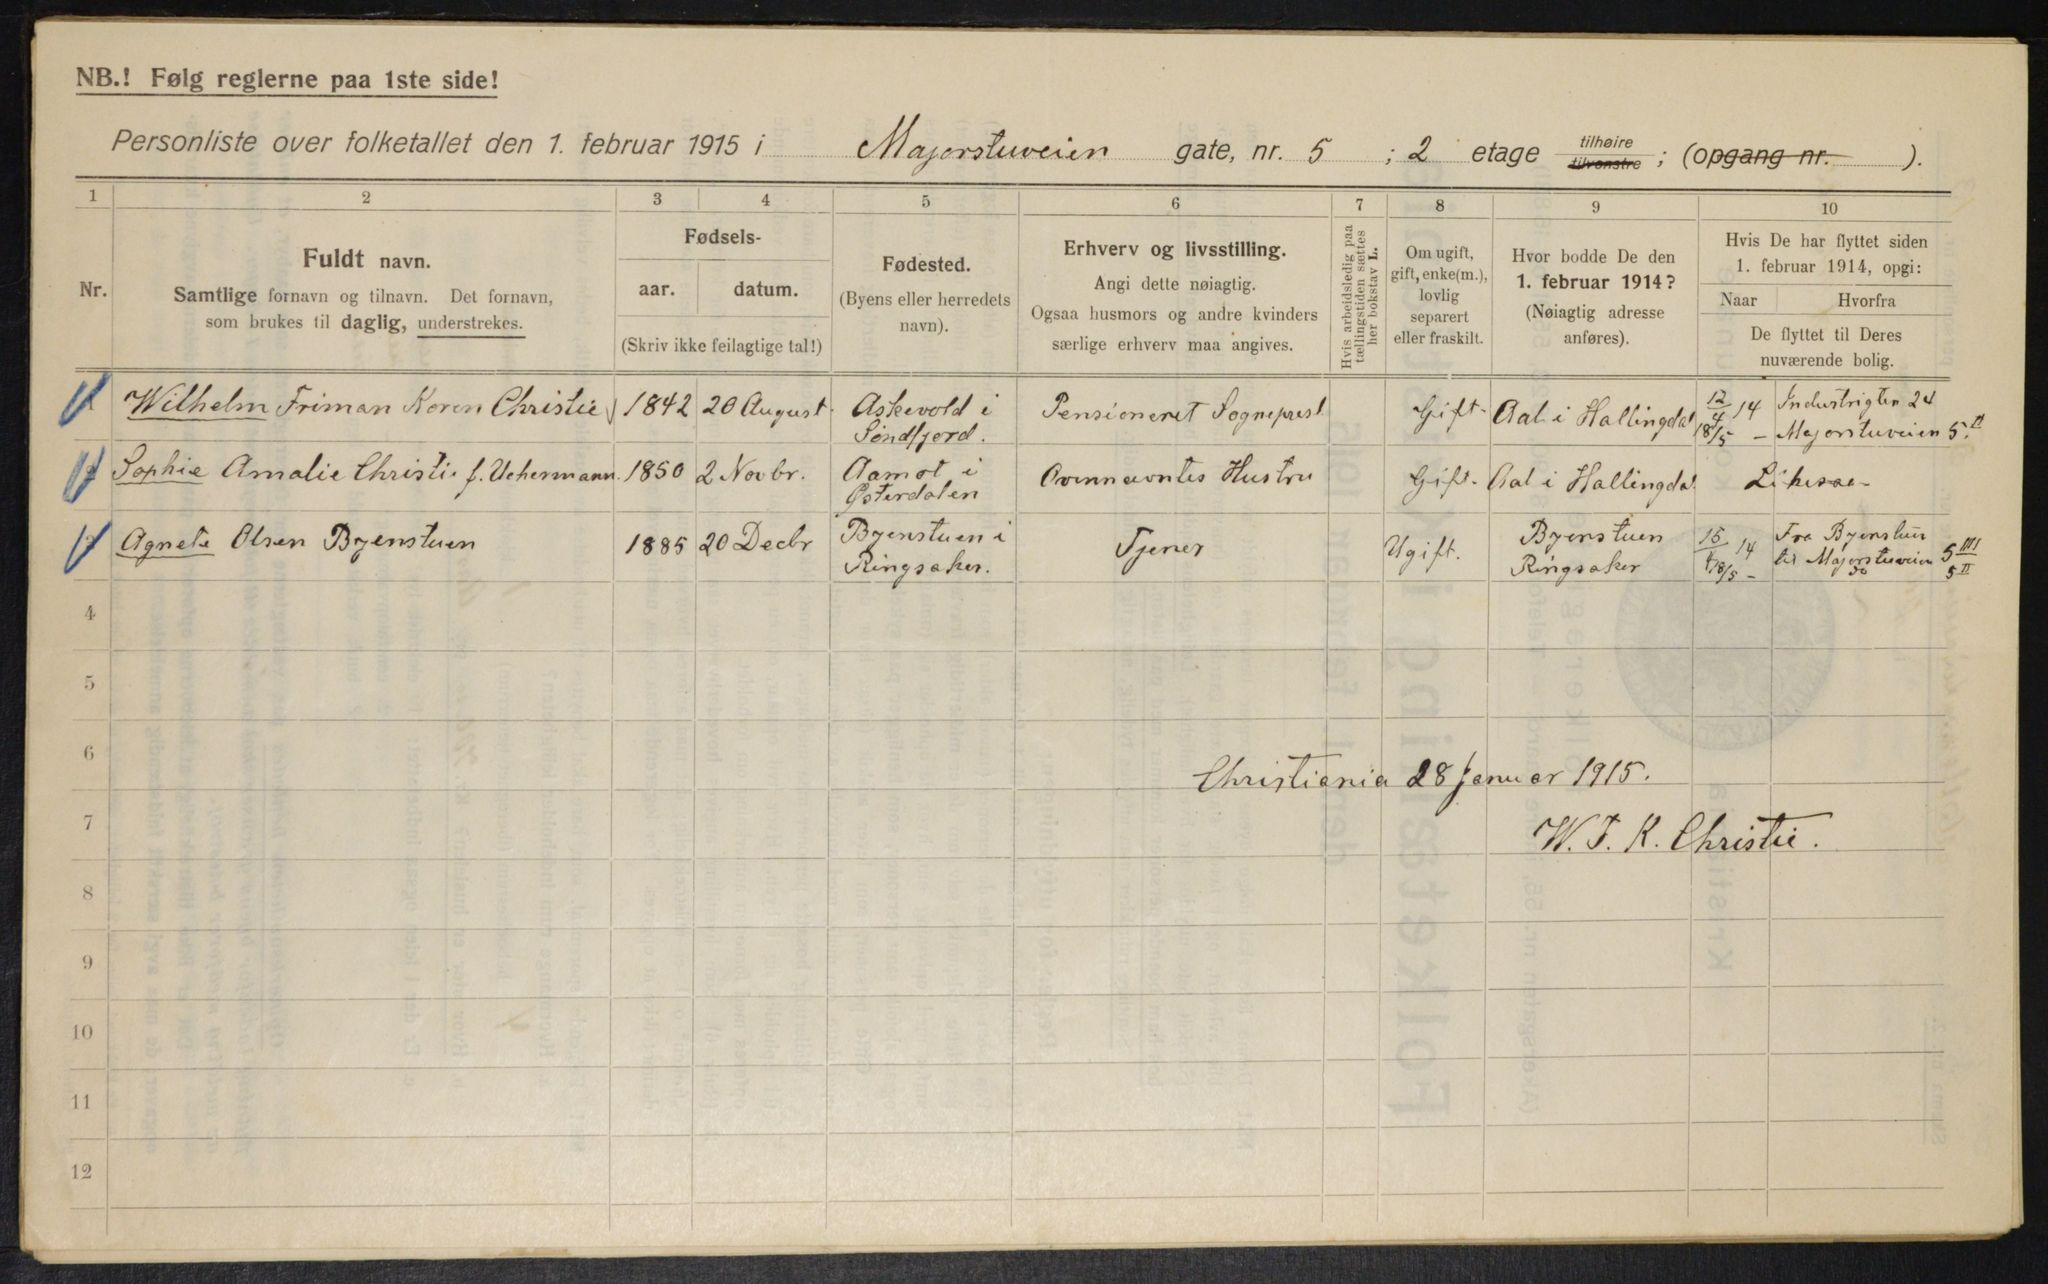 NB.! Følg reglerne paa 1ste side!
Personliste over folketallet den 1. februar 1915 i Majorstuveien gate, nr. 5 ; 2 etage tilhøire tilvenstre ; (opgang nr. ).
1 2 3 4 5 6 7 8 9 10
Nr.
Fuldt navn.
Samtlige fornavn og tilnavn. Det fornavn,
som brukes til daglig, understrekes.
Fødsels-
aar. datum.
(Skriv ikke feilagtige tal!)
Fødested.
(Byens eller herredets
navn).
Erhverv og livsstilling.
Angi dette nøiagtig.
Ogsaa husmors og andre kvinders
særlige erhverv maa angives.
Hvis arbeidsledig paa
tællingstiden sættes
her bokstav L.
Om ugift,
gift, enke(m.),
lovlig
separert
eller fraskilt.
Hvor bodde De den
1. februar 1914?
(Nøiagtig adresse
anføres).
Hvis De har flyttet siden
1. februar 1914, opgi:
Naar Hvorfra
De flyttet til Deres
nuværende bolig.
Wilhelm Friman Koren Christie 1842 20 August Askevold i Pensioneret Sogneprest Gift Aal i Hallingdal 12/4 14 Industrigten 24
Søndfjord. 18/5 — Majorstuveien 5. II
Sophie Amalie Christie f. Uchermann. 1850 2 Novbr. Aamot i Ovennævntes Hustru Gift. Aal i Hallingdal
Østerdalen
Agnete Olsen Byenstuen 1885 20 Decbr Byenstuen i Tjener Ugift. Byenstuen 15/4 14 Fra Byenstuen
Ringsaker. Ringsaker 18/5 — til Majorstuveien 5 III
5 II
4
5
6
Christiania 28 Januar 1915.
7
W. F. K. Christie.
8
9
10
11
12